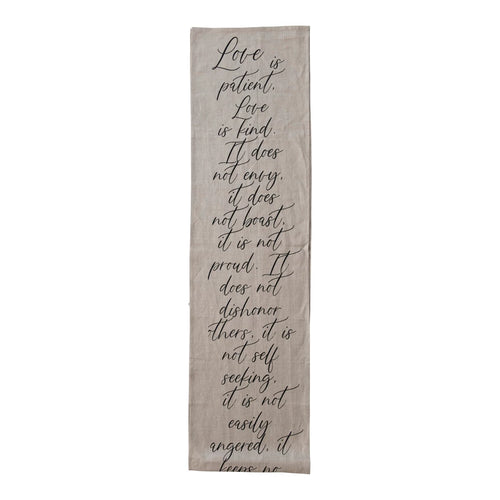 Love is
patient.
Love
is kind.
It does
not envy,
it does
not boast,
it is not
proud. It
does not
dishonor
others, it is
not self
seeking,
it is not
easily
angered, it
keeps no